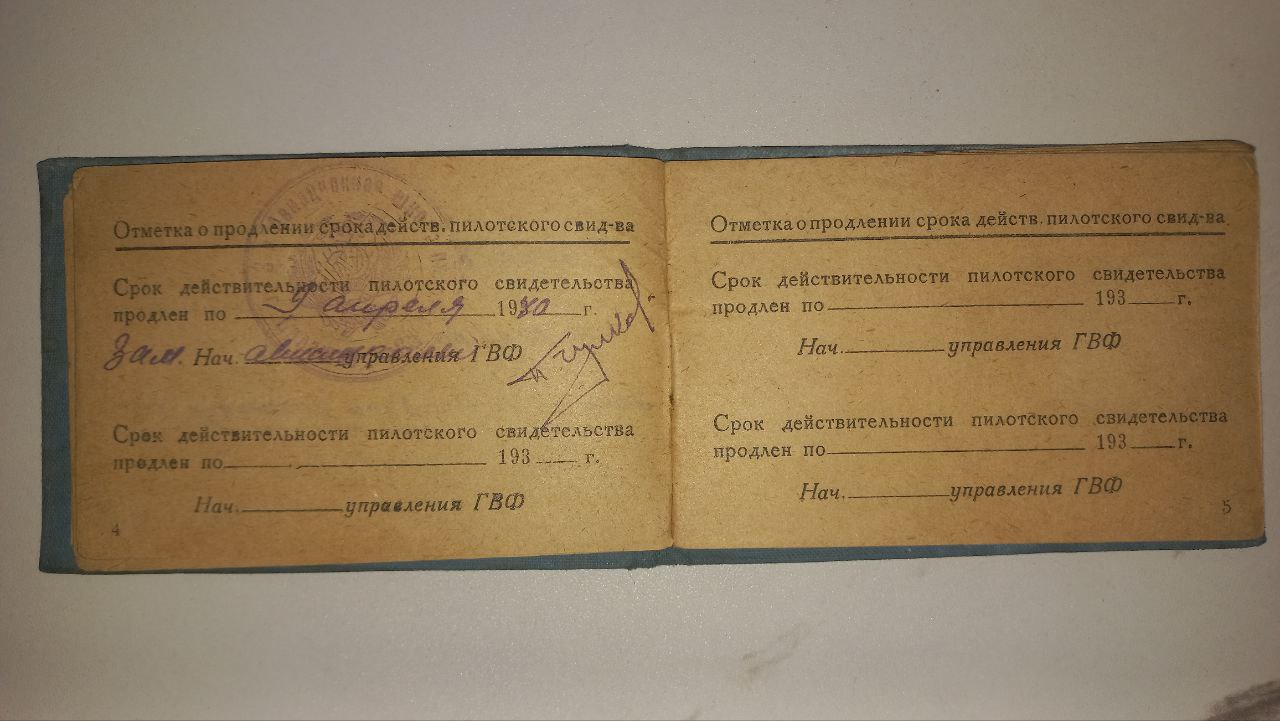 Отметка о продлении срока действ. пилотского свид-ва
Срок действительности пилотского свидетельства
продлен по 9 апреля 1940 г.
Зам. Нач. управления ГВФ
Срок действительности пилотского свидетельства
продлен по 193 г.
Нач. управления ГВФ
4
Отметка о продлении срока действ. пилотского свид-ва
Срок действительности пилотского свидетельства
продлен по 193 г.
Нач. управления ГВФ
Срок действительности пилотского свидетельства
продлен по 193 г.
Нач. управления ГВФ
5